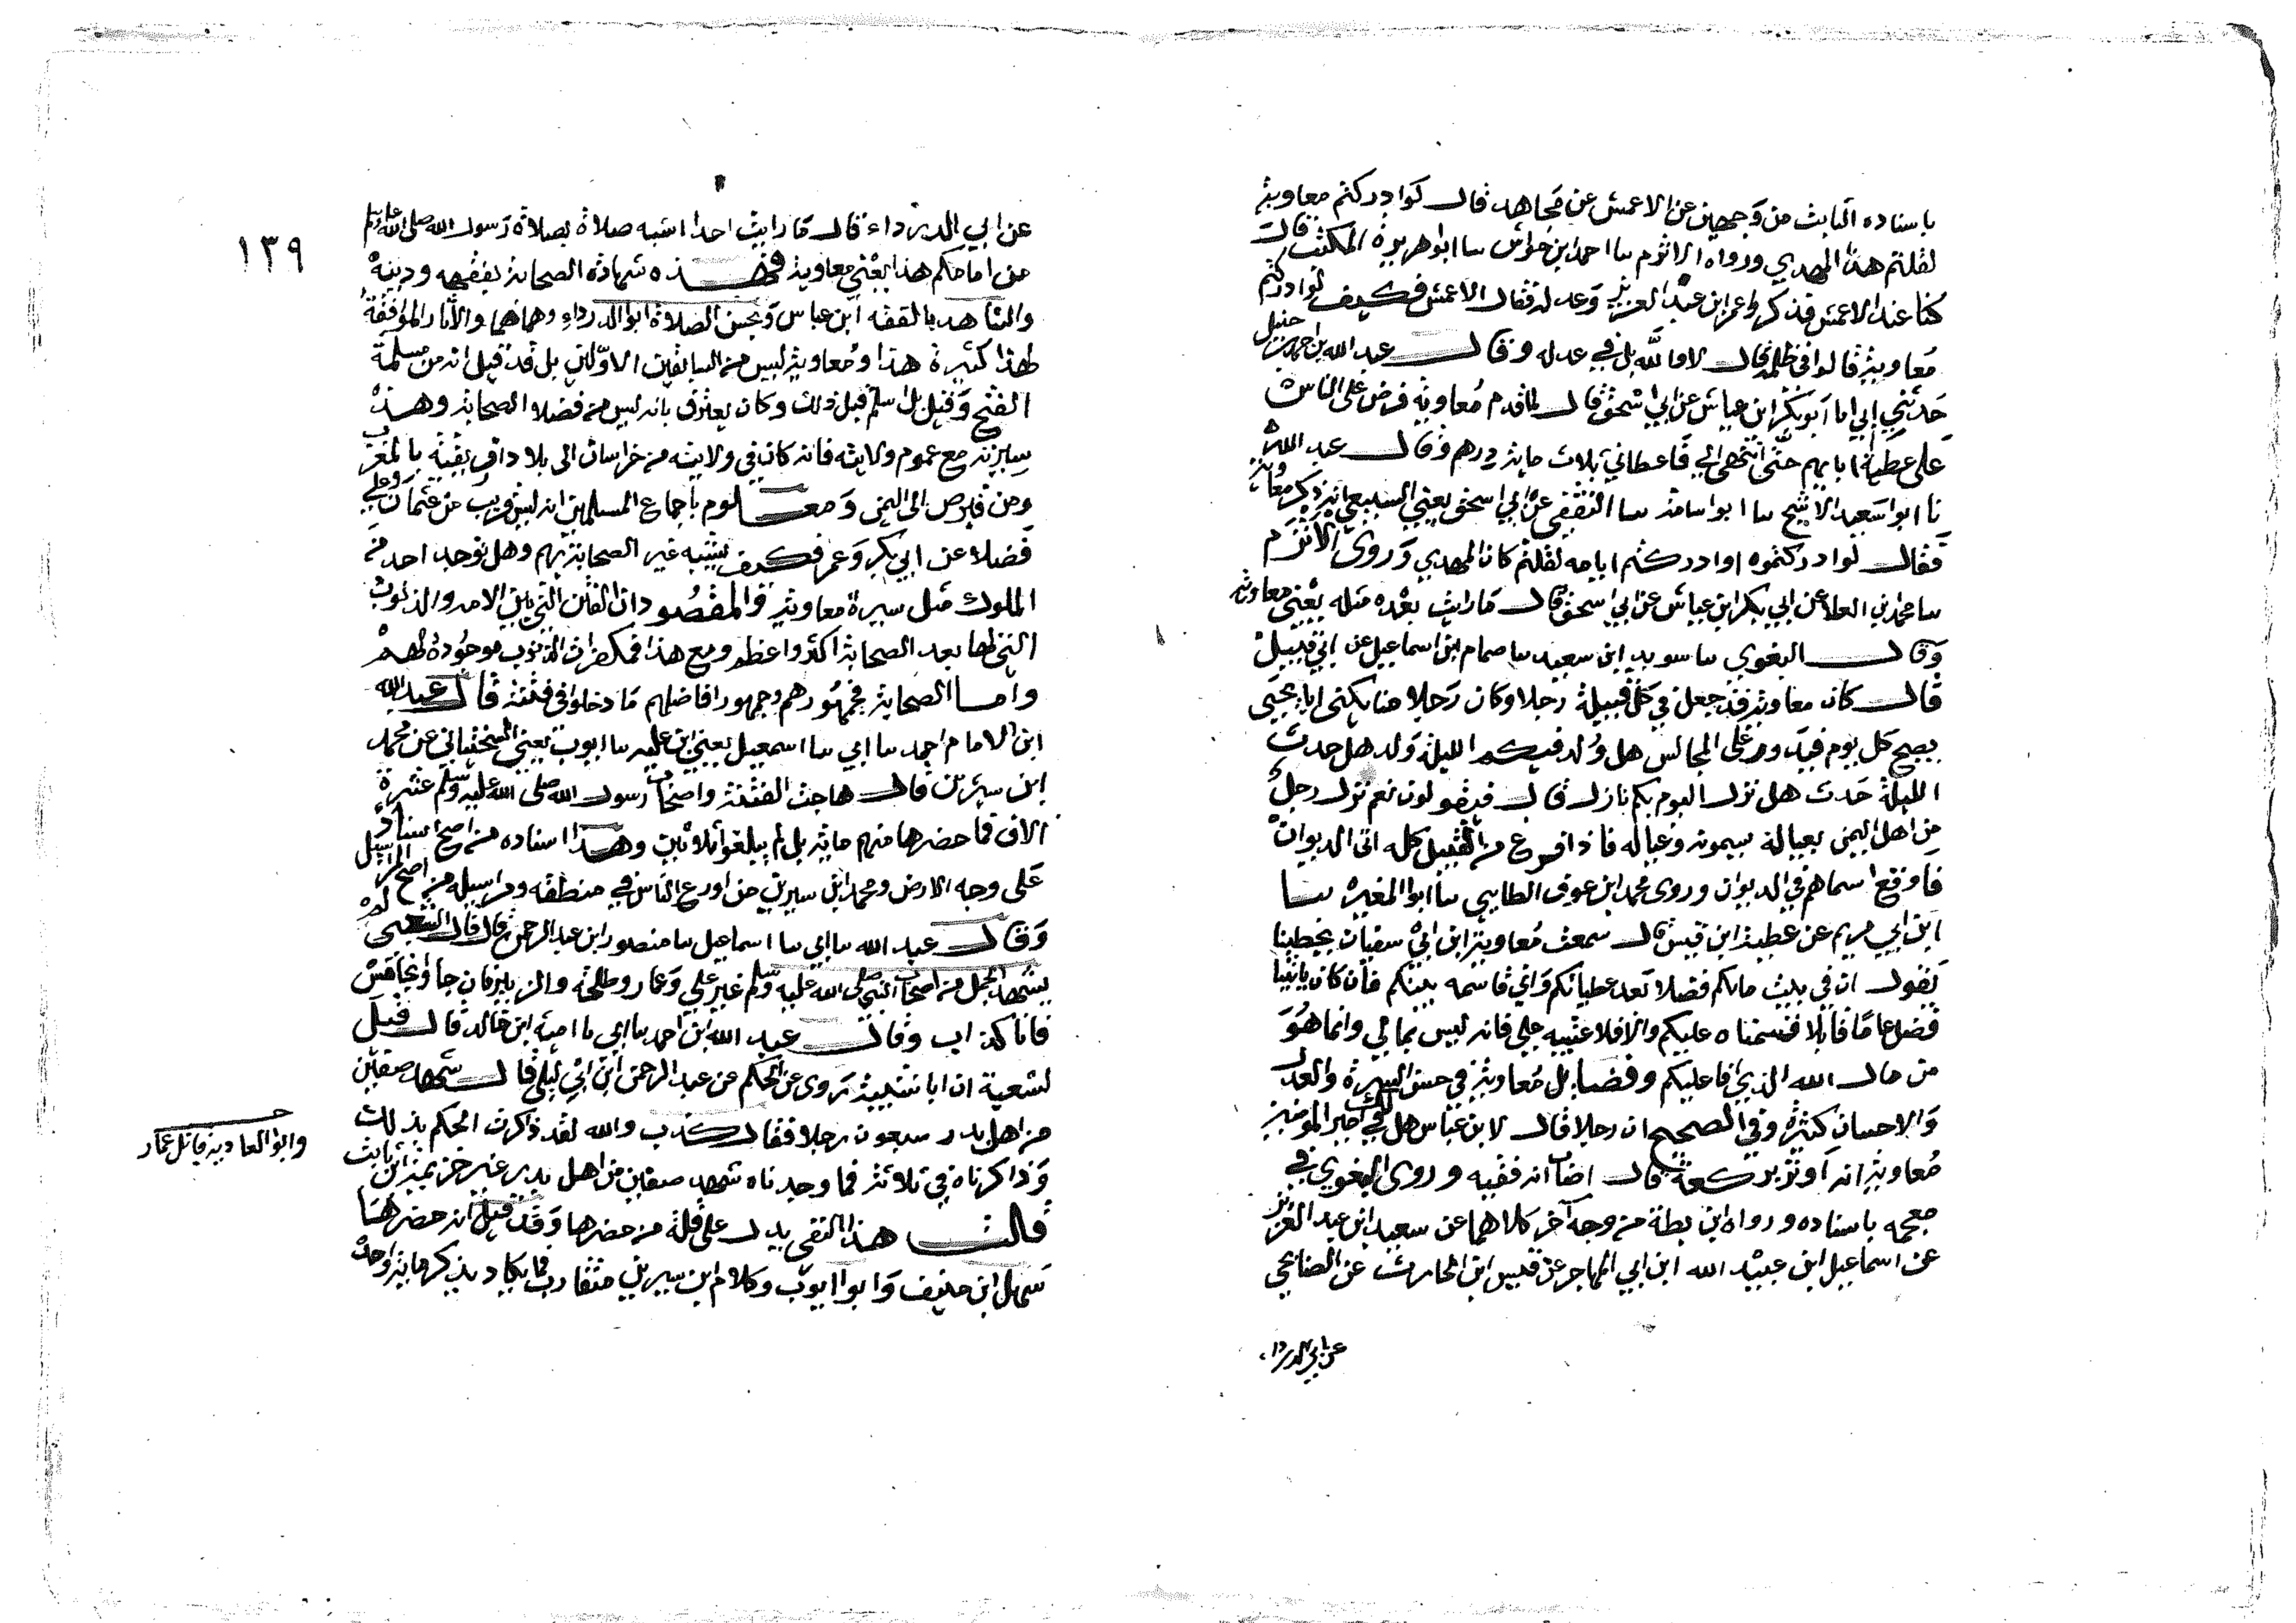 باسناده الثابت من وجهين عن الاعمش عن مجاهد قال لو ادركتم معاوية
لقلتم هذا المهدي ورواه الاثرم سا احمد ابن جواش سا ابو هريرة المكتب قال
كنا عند الاعمش فذكروا عمر ابن عبد العزيز وعدله فقال الاعمش فكيف لو ادركتم
معاوية قالوا في حلمه قال لا والله بل في عدله وقال عبد الله بن احمد بن حنبل
حدثني ابي اما ابو بكر ابن عياش عن ابي اسحق قال لما قدم معاوية فرض على الناس
على عطية ابايهم حتى انتهى الي فاعطاني ثلاث ماية درهم وقال عبد الله
نا ابو اسعيد الاشج سا ابو اسامة سا الثقفى عن ابي اسحق يعني السبيعي انه ذكر معاوية
فقال لو ادركتموه او ادركتم ايامه لقلتم كان المهدي وروى الاثرم
سا محمد بن العلا عن ابي بكر ابن عياش عن ابي اسحق قال ما رايت بعده مثله يعني معاوية
وقال البغوي سا سويد ابن سعيد سا صمام بن اسماعيل عن ابي قبيل
قال كان معاوية قد جعل في كل قبيلة رجلا وكان رجلا منا يكنى ابا يحيى
يصبح كل يوم فيدور على المجالس هل ولد فيكم الليلة ولد هل حدث
الليلة حدث هل نزل اليوم بكم نازل قال فيقولون نعم نزل رجل
من اهل اليمن بعياله يسمونه وعياله فاذا فرغ من القبيل كله اتى الديوان
فاوقع اسماهم في الديوان وروى محمد ابن عوف الطايي سا ابو المغيره سا
ابن ابي مريم عن عطية ابن قيس قال سمعت معاوية ابن ابي سفيان يخطبنا
يقول ان في بيت مالكم فضلا بعد عطياتكم واني قاسمه بينكم فان كان ياتينا
فضل عاما قابلا قسمناه عليكم والا فلا عتبه علي فانه ليس بمالي وانما هو
من مال الله الذي افا عليكم وفضايل معاوية في حسن السيرة والعدل
والاحسان كثيرة وفي الصحيح ان رجلا قال لابن عباس هل لك في امير المومنين
معاوية انه اوتر بركعة قال اصاب انه فقيه وروى البغوي في
معجمه باسناده ورواه ابن بطة من وجه آخر كلاهما عن سعيد ابن عبد العزيز
عن اسماعيل ابن عبيد الله ابن ابي المهاجر عن قيس ابن الحارث عن الصنابحي
عن ابي الدرداء
١٣٩
عن ابي الدرداء قال ما رايت احدا اشبه صلاة بصلاة رسول الله صلى الله عليه وسلم
من امامكم هذا يعني معاوية فهذه شهادة الصحابة بفقهه ودينه
والشاهد بالفقه ابن عباس وبحسن الصلاة ابو الدرداء وهما هما والآثار الموافقة
لهذا كثيرة هذا ومعاوية ليس من السابقين الاولين بل قد قيل انه من مسلمة
الفتح وقيل بل اسلم قبل ذلك وكان يعترف بانه ليس من فضلا الصحابة وهذه
سيرته مع عموم ولايته فانه كان في ولايته من خراسان الى بلاد افريقية بالمغرب
ومن قبرص الى اليمن ومعلوم باجماع المسلمين انه ليس قريب من عثمان وعلي
فضلا عن ابي بكر وعمر فكيف يشبه غير الصحابة بهم وهل توجد احد من
الملوك مثل سيرة معاوية والمقصود ان الفتن التي بين الامه والذنوب
التي لها بعد الصحابة اكثر واعظم ومع هذا فمكفرات الذنوب موجودة لهم
واما الصحابة فجمهورهم وجمهور افاضلهم ما دخلوا في فتنة قال عبد الله
ابن الامام احمد سا ابي سا اسمعيل يعني ابن عليه سا ايوب يعني السختياني عن محمد
ابن سيرين قال هاجت الفتنة واصحاب رسول الله صلى الله عليه وسلم عشرة
الاف فما حضرها منهم ماية بل لم يبلغوا ثلاثين وهذا اسناده من اصح اسناد
على وجه الارض ومحمد ابن سيرين من اورع الناس في منطقه ومراسيله من اصح المراسيل
وقال عبد الله سا ابي سا اسماعيل سا منصور ابن عبد الرحمن قال قال الشعبى لم
يشهد الجمل من اصحاب النبي صلى الله عليه وسلم غير علي وعمار وطلحه والزبير فان جاوا بخامس
فانا كذاب وقال عبد الله ابن احمد سا ابي سا امية ابن خالد قال قيل
لشعبة ان ابا شيبة روى عن الحكم عن عبد الرحمن ابن ابي ليلى قال شهد صفين
من اهل بدر سبعون رجلا فقال كذب والله لقد ذاكرت الحكم بذلك
وذاكرناه في ثلاثة فما وجدناه شهد صفين من اهل بدر غير خزيمة ابن ثابت
قالت هذا النفى يدل على قلة من حضرها وقد قيل انه حضرها
سهل ابن حنيف وابو ايوب وكلام ابن سيرين متقارب فما يكاد يذكر ماية واحدة
وابو العادية قاتل عمار